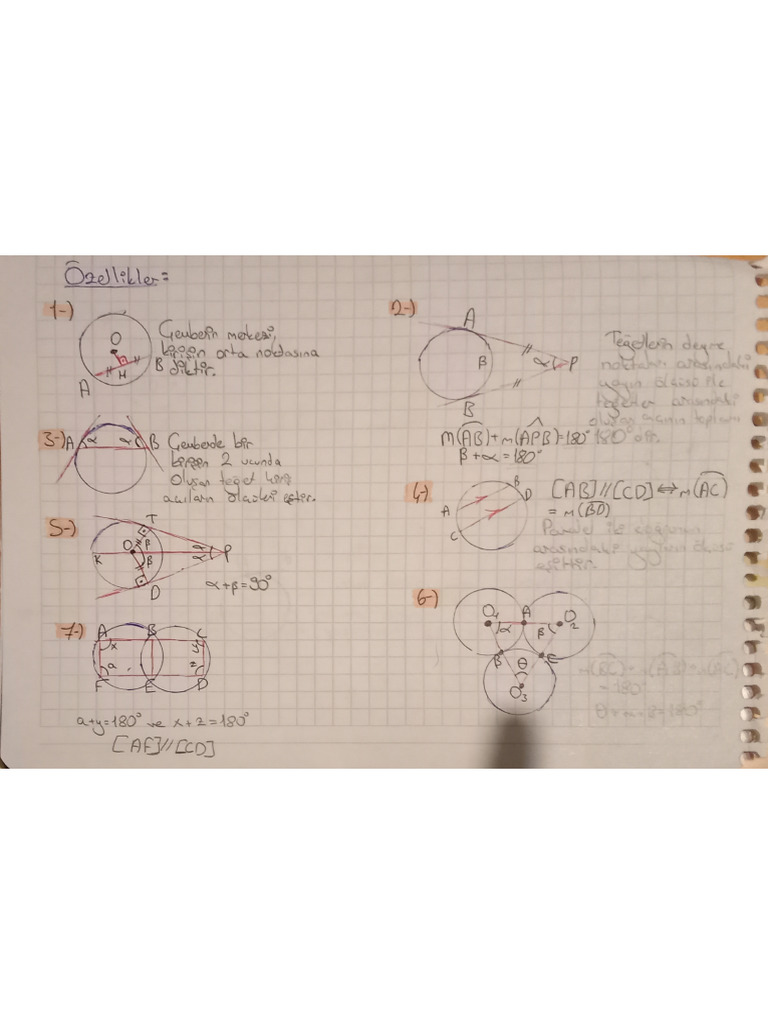 Özellikler:
1-)
O
A
H
B
Çemberin merkezi,
kirişin orta noktasına
diktir.
2-)
A
β
α
P
B
Teğetlerin değme
noktaları arasındaki
yayın ölçüsü ile
teğetler arasındaki
oluşan açının toplamı
180° dir.
m(AB)+m(APB)=180°
β+α=180°
3-)
A
α
α
B
Çemberde bir
kirişin 2 ucunda
oluşan teğet kiriş
açıların ölçüleri eşittir.
4-)
A
B
D
C
[AB]//[CD]↔m(AC)
=m(BD)
Paralel iki
arasındaki yayların ölçüsü
eşittir.
5-)
T
O
β
β
K
α
α
P
D
α+β=90°
6-)
O1
A
O2
α
β
B
C
θ
O3
m(BC)+m(AB)+m(AC)
=180°
θ+α+β=180°
7-)
A
B
C
x
y
a
z
F
E
D
a+y=180° ve x+z=180°
[AF]//[CD]